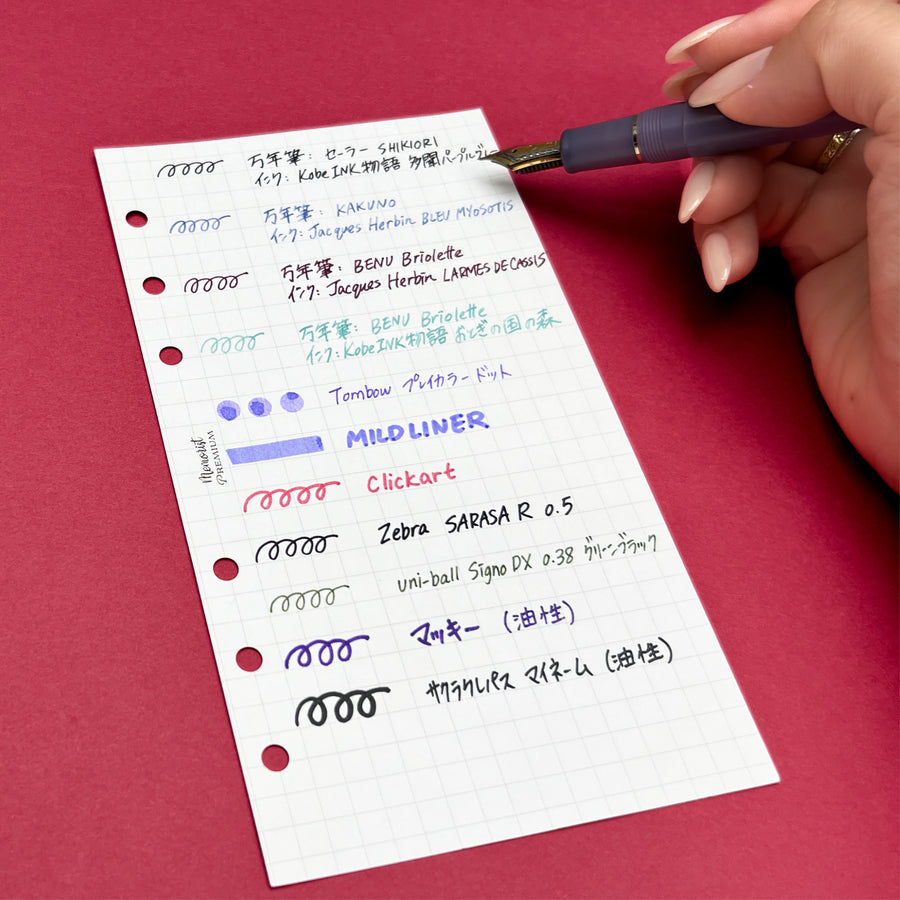 万年筆: セーラー SHIKIORI
インク: Kobe INK物語 多聞パープルグレー
万年筆: KAKUNO
インク: Jacques Herbin BLEU MYOSOTIS
万年筆: BENU Briolette
インク: Jacques Herbin LARMES DE CASSIS
万年筆: BENU Briolette
インク: Kobe INK物語 おとぎの国の森
Tombow プレイカラードット
Memorist
PREMIUM
MILDLINER
Clickart
Zebra SARASA R 0.5
uni-ball Signo DX 0.38 グリーンブラック
マッキー (油性)
サクラクレパス マイネーム (油性)